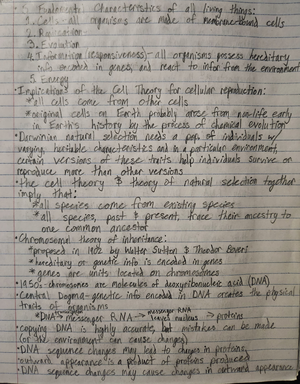 • 5 Fundamental Characteristics of all living things:
1. Cells - all organisms are made of membrane-bound cells
2. Replication
3. Evolution
4. Information (responsiveness) - all organisms possess hereditary
info encoded in genes, and react to infor from the environment
5. Energy
• Implications of the Cell Theory for cellular reproduction:
* all cells come from other cells
* original cells on Earth probably arose from non-life early
in Earth's history by the process of chemical evolution
• Darwinian natural selection needs a pop. of individuals w/
varying, heritable characteristics and in a particular environment,
certain versions of these traits help individuals survive or
reproduce more than other versions
• the cell theory & theory of natural selection together
imply that:
* all species come from existing species
* all species, past & present, trace their ancestry to
one common ancestor
• Chromosomal theory of inheritance:
* proposed in 1902 by Walter Sutton & Theodor Boveri
* hereditary or genetic info is encoded in genes
* genes are units located on chromosomes
• 1950s: chromosomes are molecules of deoxyribonucleic acid (DNA)
• Central Dogma - genetic info encoded in DNA creates the physical
traits of organisms
* DNA → messenger RNA → messenger RNA travels nucleus → proteins
• copying DNA is highly accurate, but mistakes can be made
(or the environment can cause changes)
• DNA sequence changes may lead to changes in proteins,
• outward appearance is a product of proteins produced
• DNA sequence changes may cause changes in outward appearance